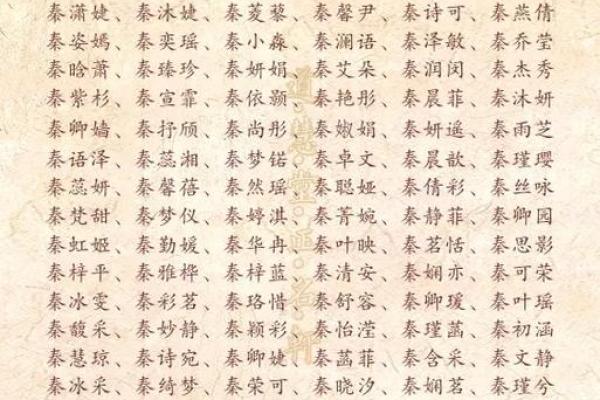 秦潇婕、秦沐婕、秦菱藜、秦馨尹、秦诗可、秦燕倩
秦姿嫣、秦奕瑶、秦小淼、秦澜语、秦泽敏、秦乔莹
秦晗萧、秦臻珍、秦妍娟、秦艾朵、秦润闵、秦杰秀
秦紫杉、秦宣霏、秦依颢、秦艳彤、秦晨菲、秦沐妍
秦卿嫱、秦抒颀、秦尚彤、秦婌娟、秦妍遥、秦雨芝
秦语泽、秦蕊湘、秦梦锘、秦卓文、秦晨歆、秦瑾璎
秦蕊妍、秦馨蓓、秦然瑶、秦聪娅、秦倩彩、秦丝咏
秦梵甜、秦梦仪、秦婷淇、秦菁婉、秦静菲、秦卿园
秦虹姬、秦勤媛、秦华冉、秦叶映、秦茗恬、秦思影
秦梓平、秦雅桦、秦梓蓝、秦清安、秦娴亦、秦可荣
秦冰雯、秦彩茗、秦珞惜、秦舒容、秦卿瑗、秦叶瑶
秦馥采、秦妙静、秦颖彩、秦怡滢、秦瑾菡、秦初涵
秦慧琼、秦诗宛、秦卿婕、秦菡菲、秦含采、秦文静
秦冰采、秦绮梦、秦荣可、秦晓汐、秦娴茗、秦瑾兮